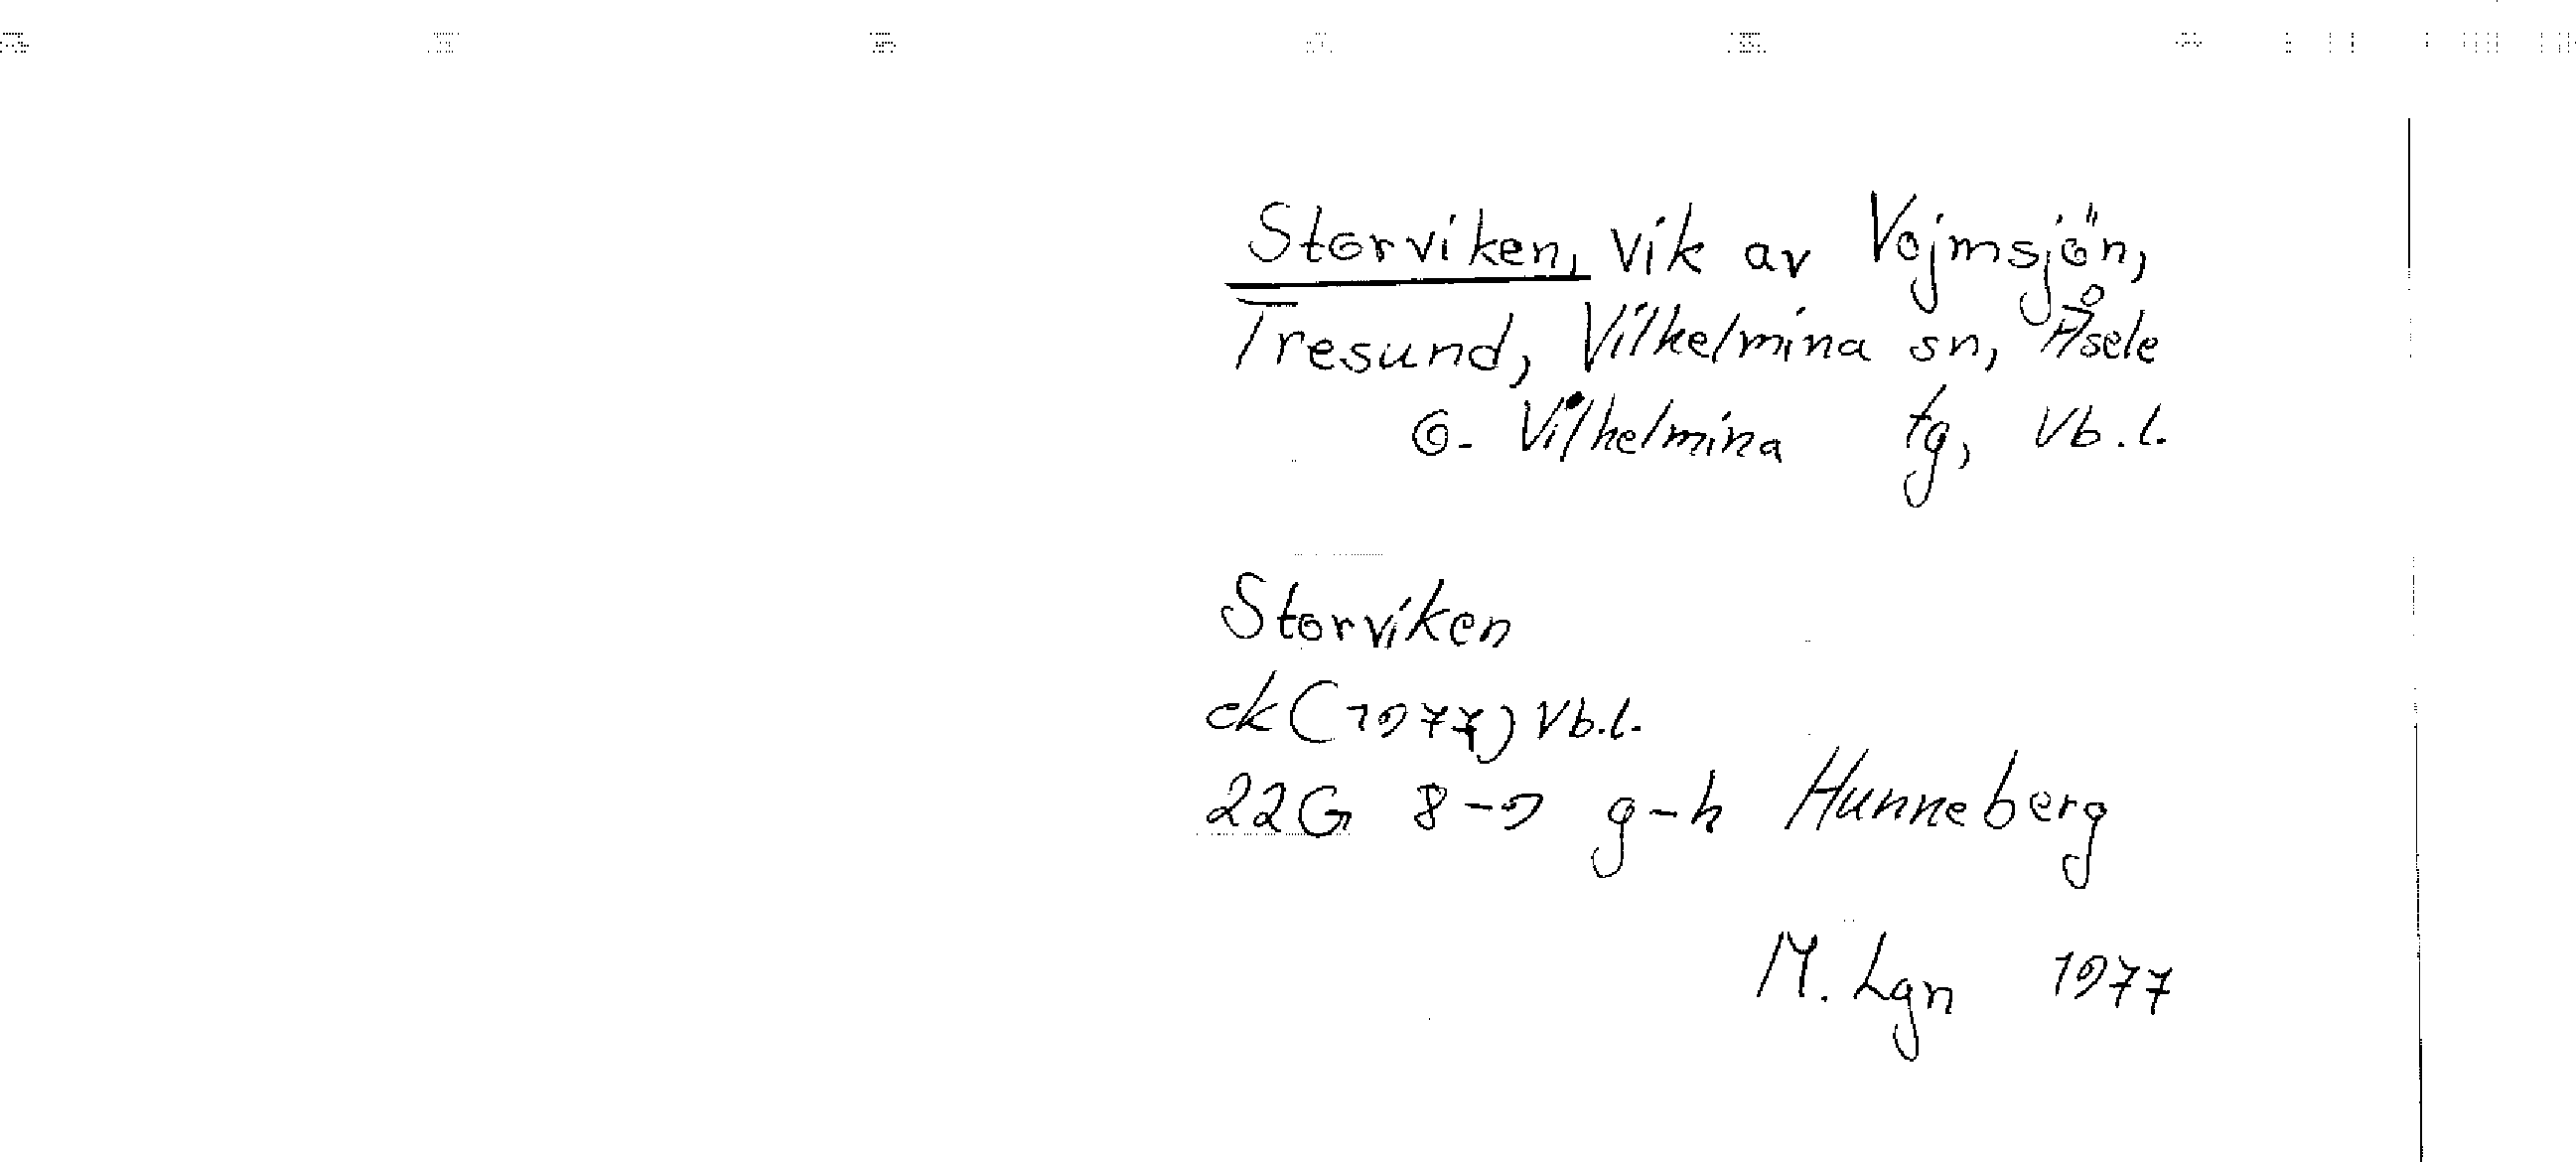 Storviken, vik av Vojmsjön,
Tresund, Vilhelmina sn, Åsele
o. Vilhelmina tg, Vb.l.
Storviken
ek (1977) Vb.l.
22G 8-9 g-h Hunneberg
M. Lgn 1977